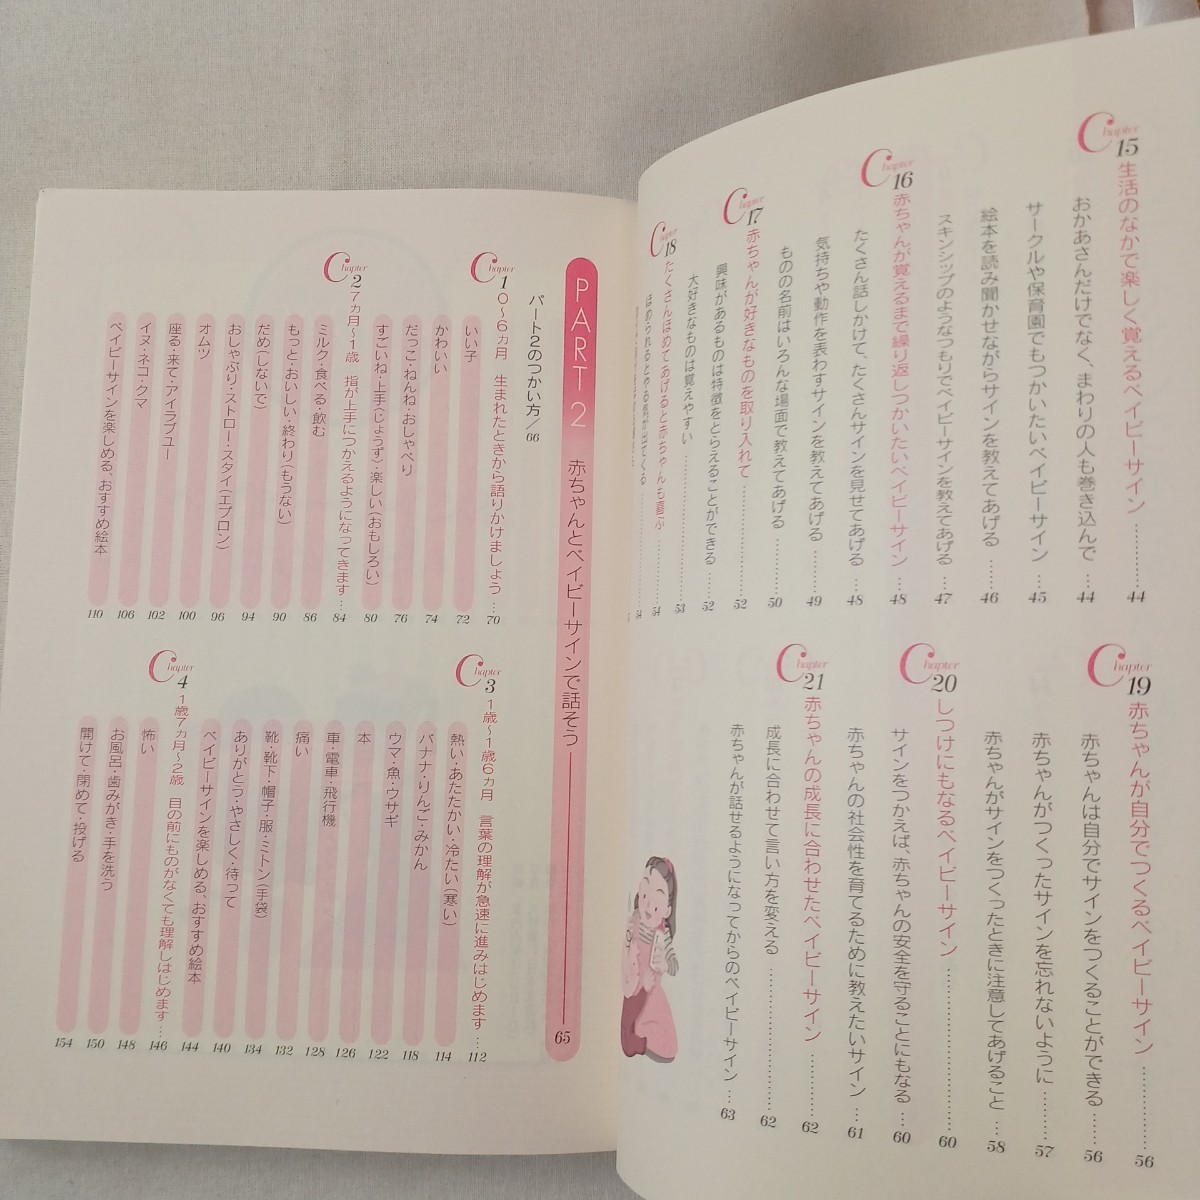 Chapter 15 生活のなかで楽しく覚えるベイビーサイン ………… 44
おかあさんだけでなく、まわりの人も巻き込んで … 44
サークルや保育園でもつかいたいベイビーサイン … 45
絵本を読み聞かせながらサインを教えてあげる …… 46
スキンシップのようなつもりでベイビーサインを教えてあげる … 47
Chapter 16 赤ちゃんが覚えるまで繰り返しつかいたいベイビーサイン … 48
たくさん話しかけて、たくさんサインを見せてあげる … 48
気持ちや動作を表わすサインを教えてあげる …… 49
ものの名前はいろんな場面で教えてあげる ……… 50
Chapter 17 赤ちゃんが好きなものを取り入れて ………… 52
興味があるものは特徴をとらえることができる … 52
大好きなものは覚えやすい ………… 53
Chapter 18 たくさんほめてあげると赤ちゃんも喜ぶ … 54
ほめられるとやる気が出てくる …… 54
Chapter 19 赤ちゃんが自分でつくるベイビーサイン ………… 56
赤ちゃんは自分でサインをつくることができる …… 56
赤ちゃんがつくったサインを忘れないように ……… 57
赤ちゃんがサインをつくったときに注意してあげること … 58
Chapter 20 しつけにもなるベイビーサイン ………… 60
サインをつかえば、赤ちゃんの安全を守ることにもなる … 60
赤ちゃんの社会性を育てるために教えたいサイン … 61
Chapter 21 赤ちゃんの成長に合わせたベイビーサイン ……… 62
成長に合わせて言い方を変える ………… 62
赤ちゃんが話せるようになってからのベイビーサイン … 63
PART 2 赤ちゃんとベイビーサインで話そう 65
パート2のつかい方／66
Chapter 1 0〜6ヵ月 生まれたときから語りかけましょう … 70
いい子 72
かわいい 74
だっこ・ねんね・おしゃべり 76
すごいね・上手(じょうず)・楽しい(おもしろい) 80
Chapter 2 7ヵ月〜1歳 指が上手につかえるようになってきます … 84
ミルク・食べる・飲む 86
もっと・おいしい・終わり(もうない) 90
だめ(しないで) 94
おしゃぶり・ストロー・スタイ(エプロン) 96
オムツ 100
座る・来て・アイラブユー 102
イヌ・ネコ・クマ 106
ベイビーサインを楽しめる、おすすめ絵本 110
Chapter 3 1歳〜1歳6ヵ月 言葉の理解が急速に進みはじめます … 112
熱い・あたたかい・冷たい(寒い) 114
バナナ・りんご・みかん 118
ウマ・魚・ウサギ 122
本 126
車・電車・飛行機 128
痛い 132
靴・靴下・帽子・服・ミトン(手袋) 134
ありがとう・やさしく・待って 140
ベイビーサインを楽しめる、おすすめ絵本 144
Chapter 4 1歳7ヵ月〜2歳 目の前にものがなくても理解しはじめます … 146
怖い 148
お風呂・歯みがき・手を洗う 150
開けて・閉めて・投げる 154